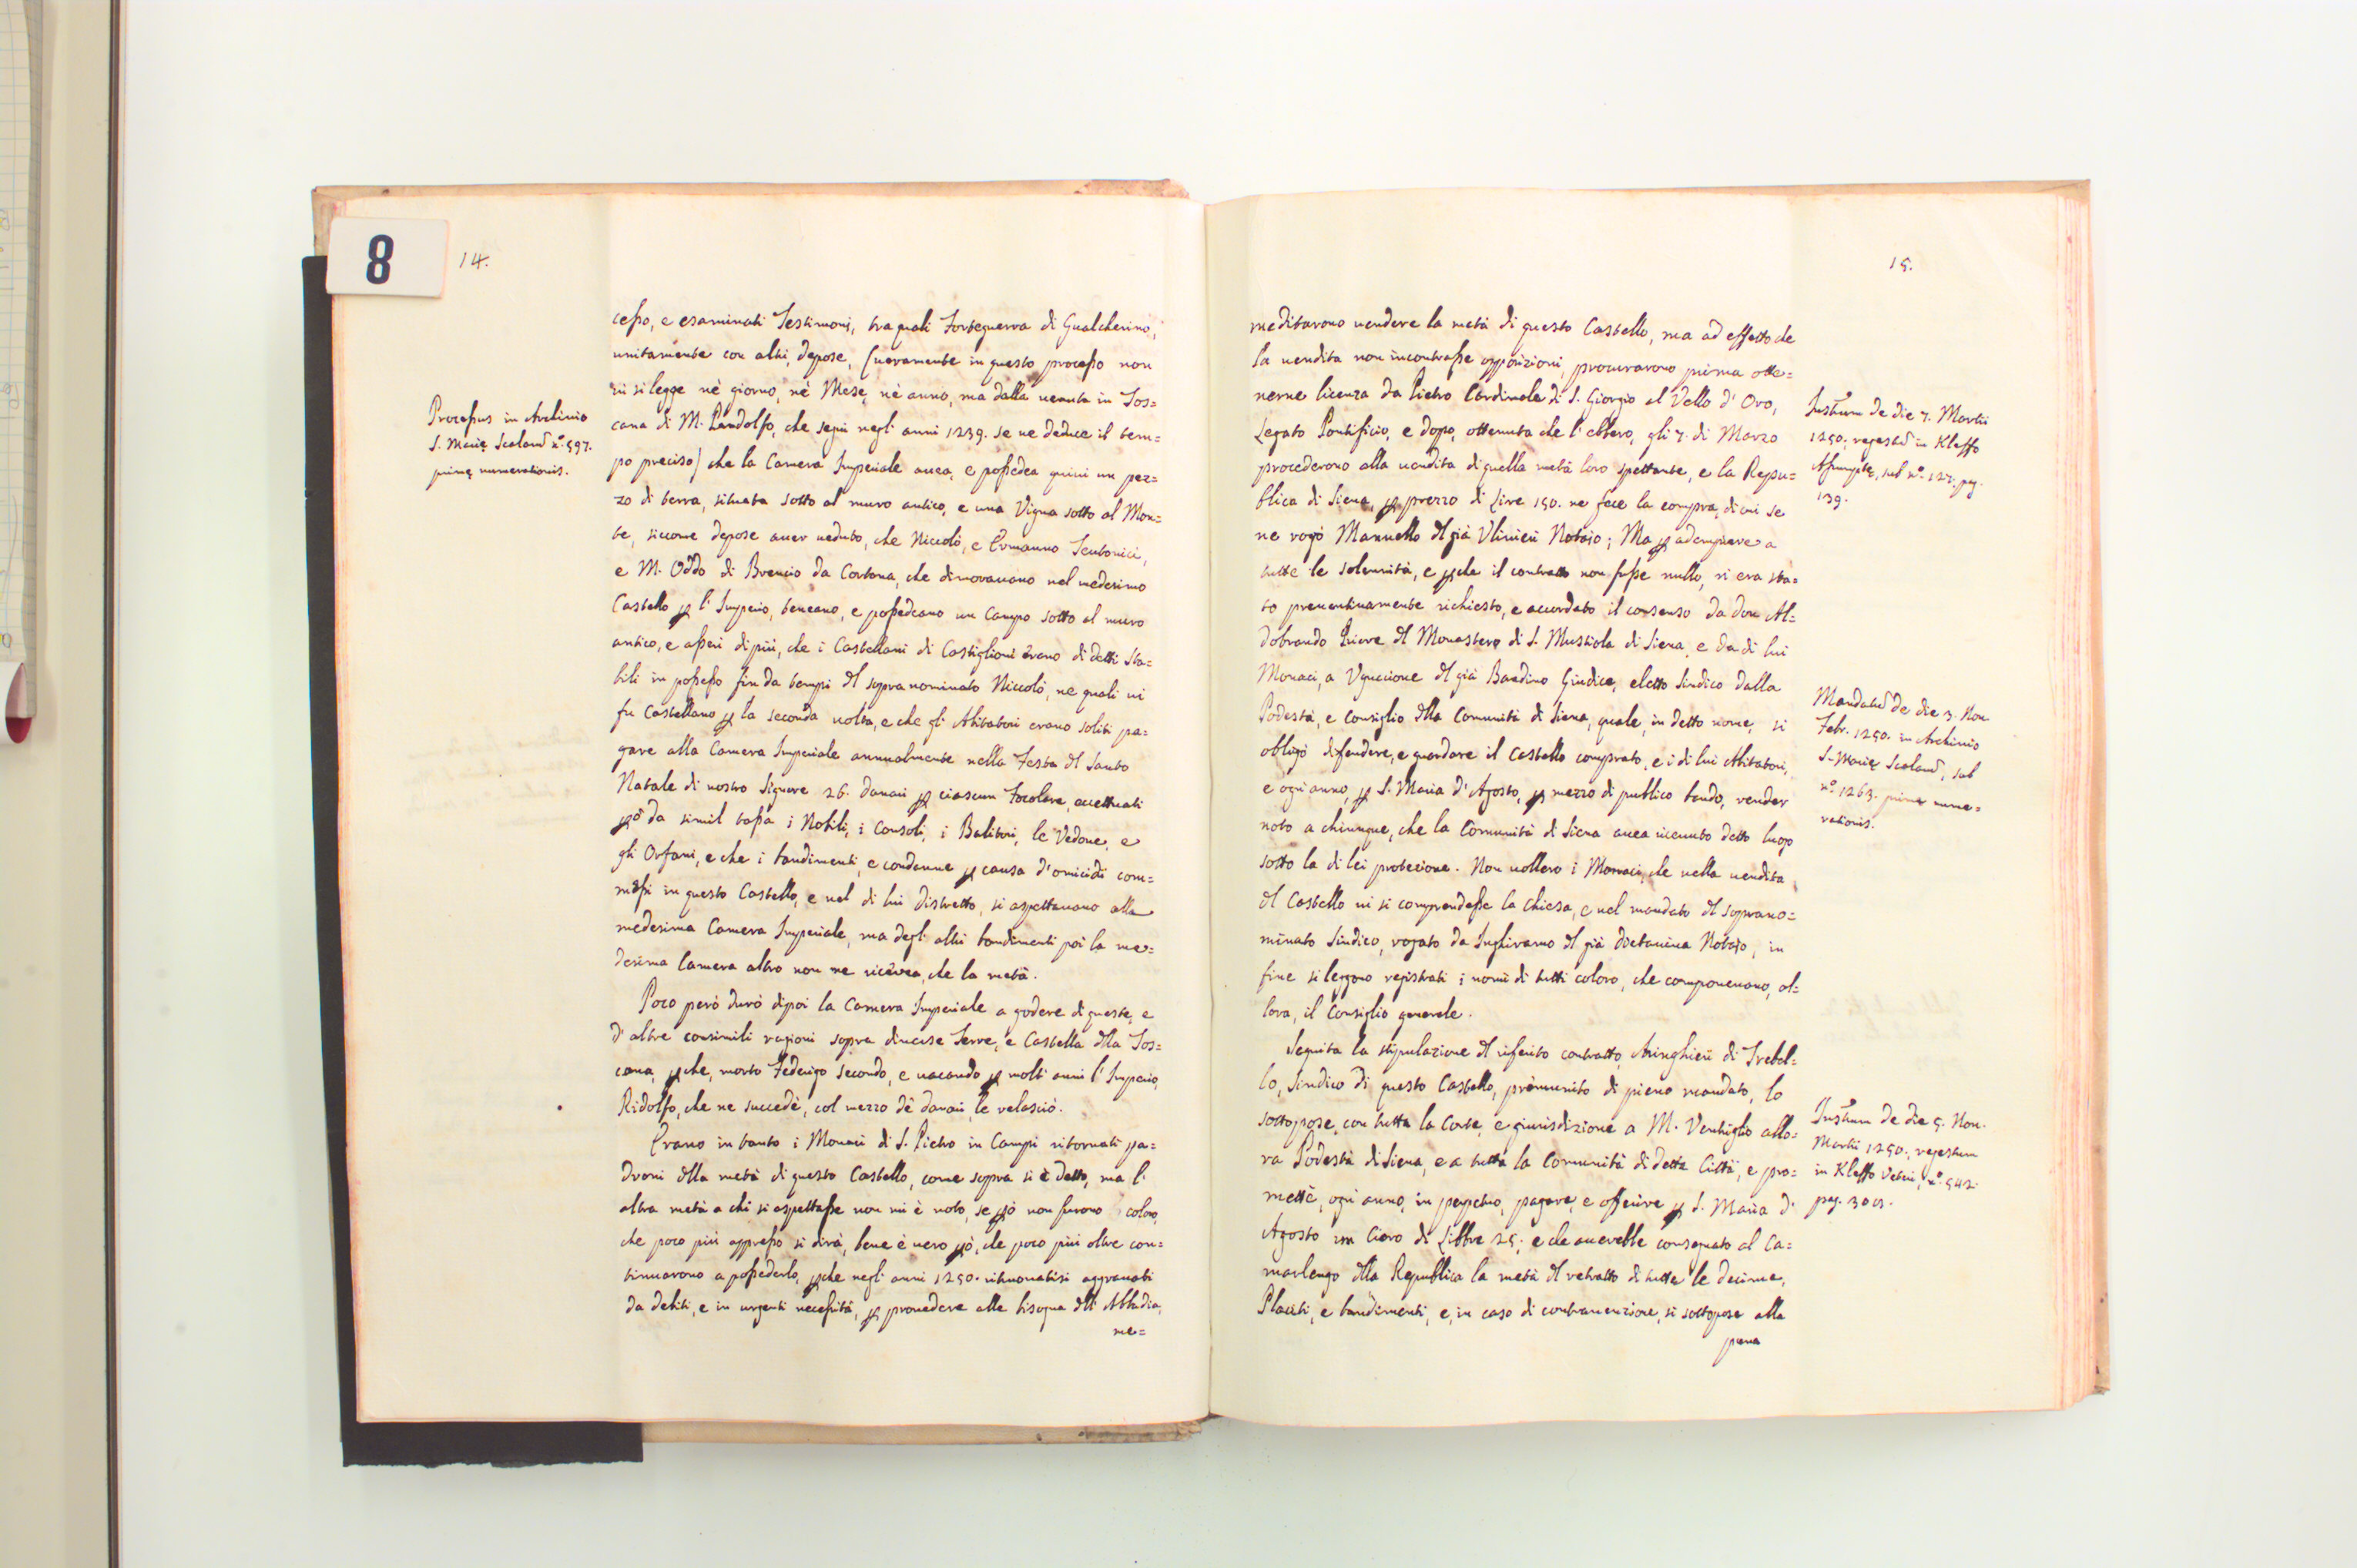 8
14.
cesso, e esaminati Testimoni, tra quali Forteguerra di Gualcherino,
unitamente con altri, depose, (veramente in questo processo non
vi si legge nè giorno, nè Mese, nè anno, ma dalla venuta in Tos=
cana di M. Pandolfo, che seguì negl'anni 1239. se ne deduce il tem=
po preciso) che la Camera Imperiale avea, e possedea quivi un pez=
zo di terra, situata sotto al muro antico, e una Vigna sotto al Mon=
te, siccome depose aver veduto, che Niccolò, e Ermanno Teutonici,
e M. Oddo di Brencio da Cortona, che dimoravano nel medesimo
Castello p l'Imperio, teneano, e possedeano un Campo sotto al muro
antico, e asserì di più, che i Castellani di Castiglioni erano di detti sta=
bili in possesso fin da tempi dl sopra nominato Niccolò, ne quali vi
fu Castellano p la seconda volta, e che gli Abitatori erano soliti pa=
gare alla Camera Imperiale annualmente nella Festa dl Santo
Natale di nostro Signore 26. danari p ciascun Focolare, accettuati
pò da simil tassa i Nobili, i Consoli, i Balitori, le Vedove, e
gli Orfani, e che i bandimenti, e condanne p causa d'omicidi com=
messi in questo Castello, e nel di lui distretto, si aspettavano alla
medesima Camera Imperiale, ma degl'altri bandimenti poi la me=
desima Camera altro non ne ricevea, che la metà.
Poco però durò dipoi la Camera Imperiale a godere di queste, e
d'altre consimili ragioni sopra diverse Terre, e Castella dlla Tos=
cana, pche, morto Federigo secondo, e vacando p molti anni l'Imperio,
Ridolfo, che ne succedè, col mezzo dè danari, le relasciò.
Erano in tanto i Monaci di S. Pietro in Campi ritornati pa=
droni dlla metà di questo Castello, come sopra si è detto, ma l'
altra metà a chi si aspettasse non mi è noto, se pò non furono coloro,
che poco più appresso si dirà, bene è vero pò, che poco più oltre con=
tinuarono a possederlo, pche negl'anni 1250. ritrovatisi aggravati
da debiti, e in urgenti necessità, p provedere alle bisogna dll'Abbadia,
me=
Processus in Archivio
S. Marię Scalarum n.º 597.
primę numerationis.
15.
meditarono vendere la metà di questo Castello, ma ad effetto che
la vendita non incontrasse opposizioni, procurarono prima otte=
nerne licenza da Pietro Cardinale di S. Giorgio al Vello d'Oro,
Legato Pontificio, e dopo, ottenuta che l'ebbero, gli 7. di Marzo
procederono alla vendita di quella metà loro spettante, e la Repu=
blica di Siena, p prezzo di Lire 150. ne fece la compra, di cui se
ne rogò Mannello dl già Ulivieri Notajo; Ma p adempiere a
tutte le solennità, e pche il contratto non fusse nullo, vi era sta=
to preventivamente richiesto, e accordato il consenso da don Al=
dobrando Priore dl Monastero di S. Mustiola di Siena, e da di lui
Monaci, a Uguccione dl già Bandino Giudice, eletto Sindico dalla
Podestà, e Consiglio dlla Comunità di Siena, quale, in detto nome, si
obligò difendere, e guardare il Castello comprato, e i di lui Abitatori,
e ogni anno, p S. Maria d'Agosto, p mezzo di publico bando, render
noto a chiunque, che la Comunità di Siena avea ricevuto detto luogo
sotto la di lei protezione. Non vollero i Monaci, che nella vendita
dl Castello vi si comprendesse la Chiesa, e nel mandato dl soprano=
minato Sindico, rogato da Inghiramo dl già Notajo, in
fine si leggono registrati i nomi di tutti coloro, che componevano, al=
lora, il Consiglio generale.
Seguita la stipulazione dl riferito contratto, Aringhieri di Trebal=
lo, Sindico di questo Castello, premunito di pieno mandato, lo
sottopose, con tutta la Corte, e giurisdizione a M. Ventriglio allo=
ra Podestà di Siena, e a tutta la Comunità di detta Città, e pro=
mettè, ogni anno, in perpetuo, pagare, e offerire p S. Maria d'
Agosto un Ciero di Libbre 25; e che averebbe consegnato al Ca=
marlengo dlla Republica la metà dl retratto di tutte le decime,
Placiti, e bandimenti, e, in caso di contravenzione, si sottopose alla
pena
Instrum de die 7. Martii
1250. regestum in Kleffo
Assumptę, sub n.º 127. pag.
139.
Mandatum de die 3. Non.
Febr. 1250. in Archivio
S. Marię Scalarum, sub
n.º 1263. primę nume=
rationis.
Instrum de die 5. Non.
Martii 1250. regestum
in Kleffo Veteri, n.º 542.
pag. 309.